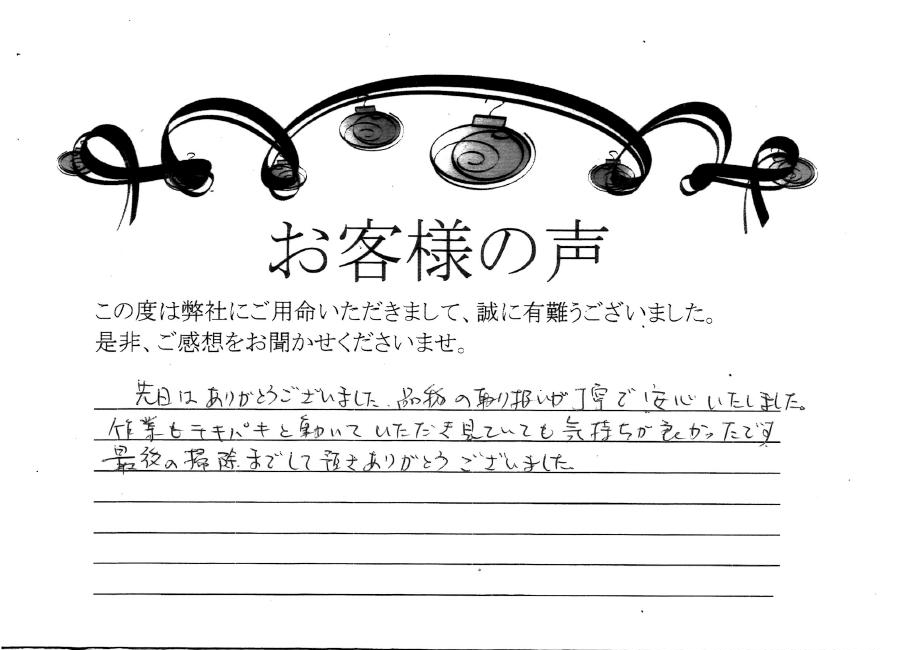 お客様の声
この度は弊社にご用命いただきまして、誠に有難うございました。
是非、ご感想をお聞かせくださいませ。
先日はありがとうございました、品物の取り扱いが丁寧で安心いたしました。
作業もテキパキと動いていただき見ていても気持ちが良かったです
最後の掃除までして頂きありがとうございました。